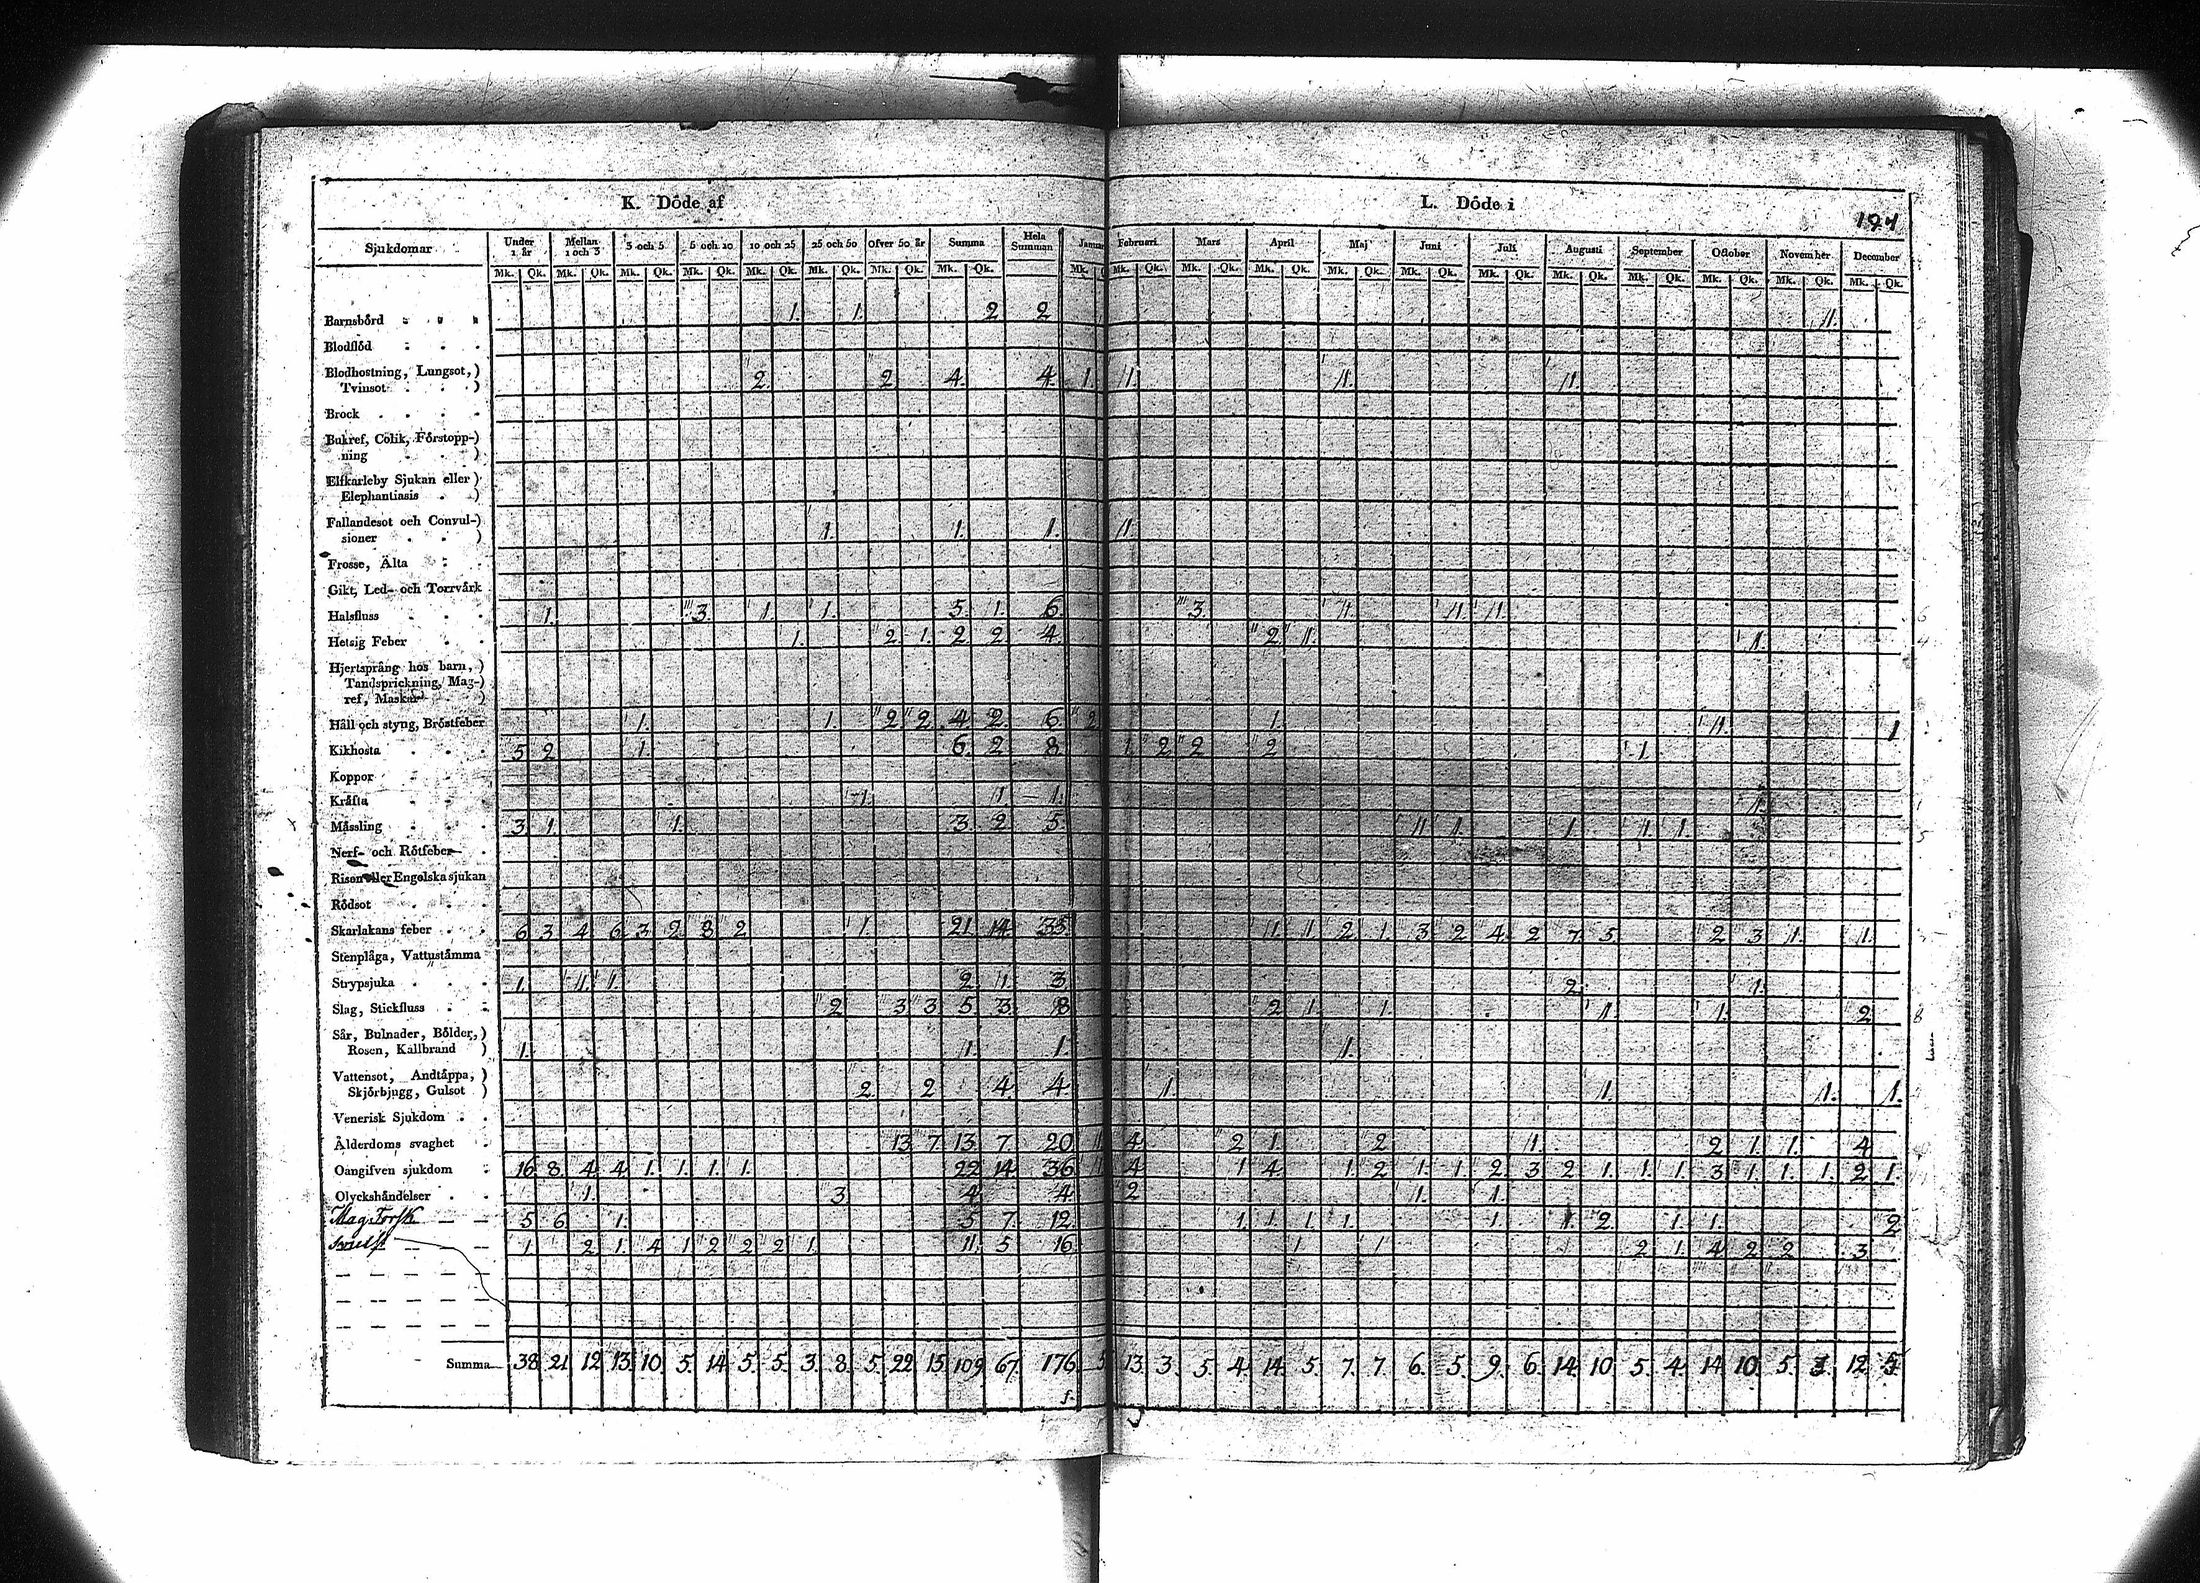 K. Döde af L. Döde i
194
Sjukdomar Under 1 år Mellan 1 och 3 3 och 5 5 och 10 10 och 25 25 och 50 Ofver 50 år Summa Hela Summan Januari Februari Mars April Maj Juni Juli Augusti September October November December
Mk. Qk. Mk. Qk. Mk. Qk. Mk. Qk. Mk. Qk. Mk. Qk. Mk. Qk. Mk. Qk. Mk. Mk. Qk. Mk. Qk. Mk. Qk. Mk. Qk. Mk. Qk. Mk. Qk. Mk. Qk. Mk. Qk. Mk. Qk. Mk. Qk. Mk. Qk.
Barnsbörd 1. 1. 2 2 1.
Blodflöd
Blodhostning, Lungsot,)
Tvinsot ) 2 2 4. 4. 1. 1. 1. 1.
Brock
Bukref, Colik, Förstopp-)
ning )
Elfkarleby Sjukan eller )
Elephantiasis )
Fallandesot och Convul-)
sioner ) 1. 1. 1. 1.
Frosse, Älta
Gikt, Led- och Torrvärk
Halsfluss 1. 3. 1. 1. 5. 1. 6. 3. 1. 1. 1.
Hetsig Feber 1. 2. 1. 2 2 4. 2 1. 1.
Hjertsprång hos barn, )
Tandsprickning, Mag-)
ref, Maskar )
Håll och styng, Bröstfeber 1. 1. 2 2 4 2. 6 2 1. 1. 1
Kikhosta 5 2 1. 6. 2 8 1. 2 2 2 1
Koppor
Kräfta 1. 1 1. 1.
Mässling 3. 1. 1. 3. 2. 5. 1 1. 1. 1. 1.
Nerf- och Rötfeber
Risen eller Engelska sjukan
Rödsot
Skarlakans feber 6 3 4. 6. 3. 2. 8 2 1. 21. 14. 35 1. 1. 2. 1. 3 2 4. 2 7 5. 2 3 1. 1.
Stenplåga, Vattustämma
Strypsjuka 1. 1. 1. 2. 1. 3. 2. 1.
Slag, Stickfluss 2 3 3 5 3. 8 2 1. 1. 1. 1. 2
Sår, Bulnader, Bölder,)
Rosen, Kallbrand ) 1. 1. 1. 1.
Vattensot, Andtäppa, )
Skjörbjugg, Gulsot ) 2. 2 4. 4. 1. 1. 1. 1.
Venerisk Sjukdom
Ålderdoms svaghet 13 7. 13. 7. 20 4. 2 1. 2 1. 2 1. 1. 4
Oangifven sjukdom 16 8. 4 4. 1. 1. 1. 1. 22 14. 36 4 1. 4. 1. 2 1. 1. 2 3 2 1. 1. 1. 3. 1. 1. 1. 2 1.
Olyckshändelser 1. 3. 4. 4. 2 1. 1.
5 6. 1. 5 7. 12. 1. 1. 1. 1. 1. 1. 2. 1. 1. 2
1 2. 1. 4 1. 2 2 2 1. 11. 5 16 1 1 2. 1. 4. 2. 2 3.
Summa 38 21. 12 13. 10. 5. 14. 5. 5. 3. 8. 5. 22. 15. 109. 67. 176 5 13. 3. 5. 4. 14. 5. 7. 7. 6. 5. 9. 6. 14. 10. 5. 4. 14. 10. 5. 3. 12. 5.